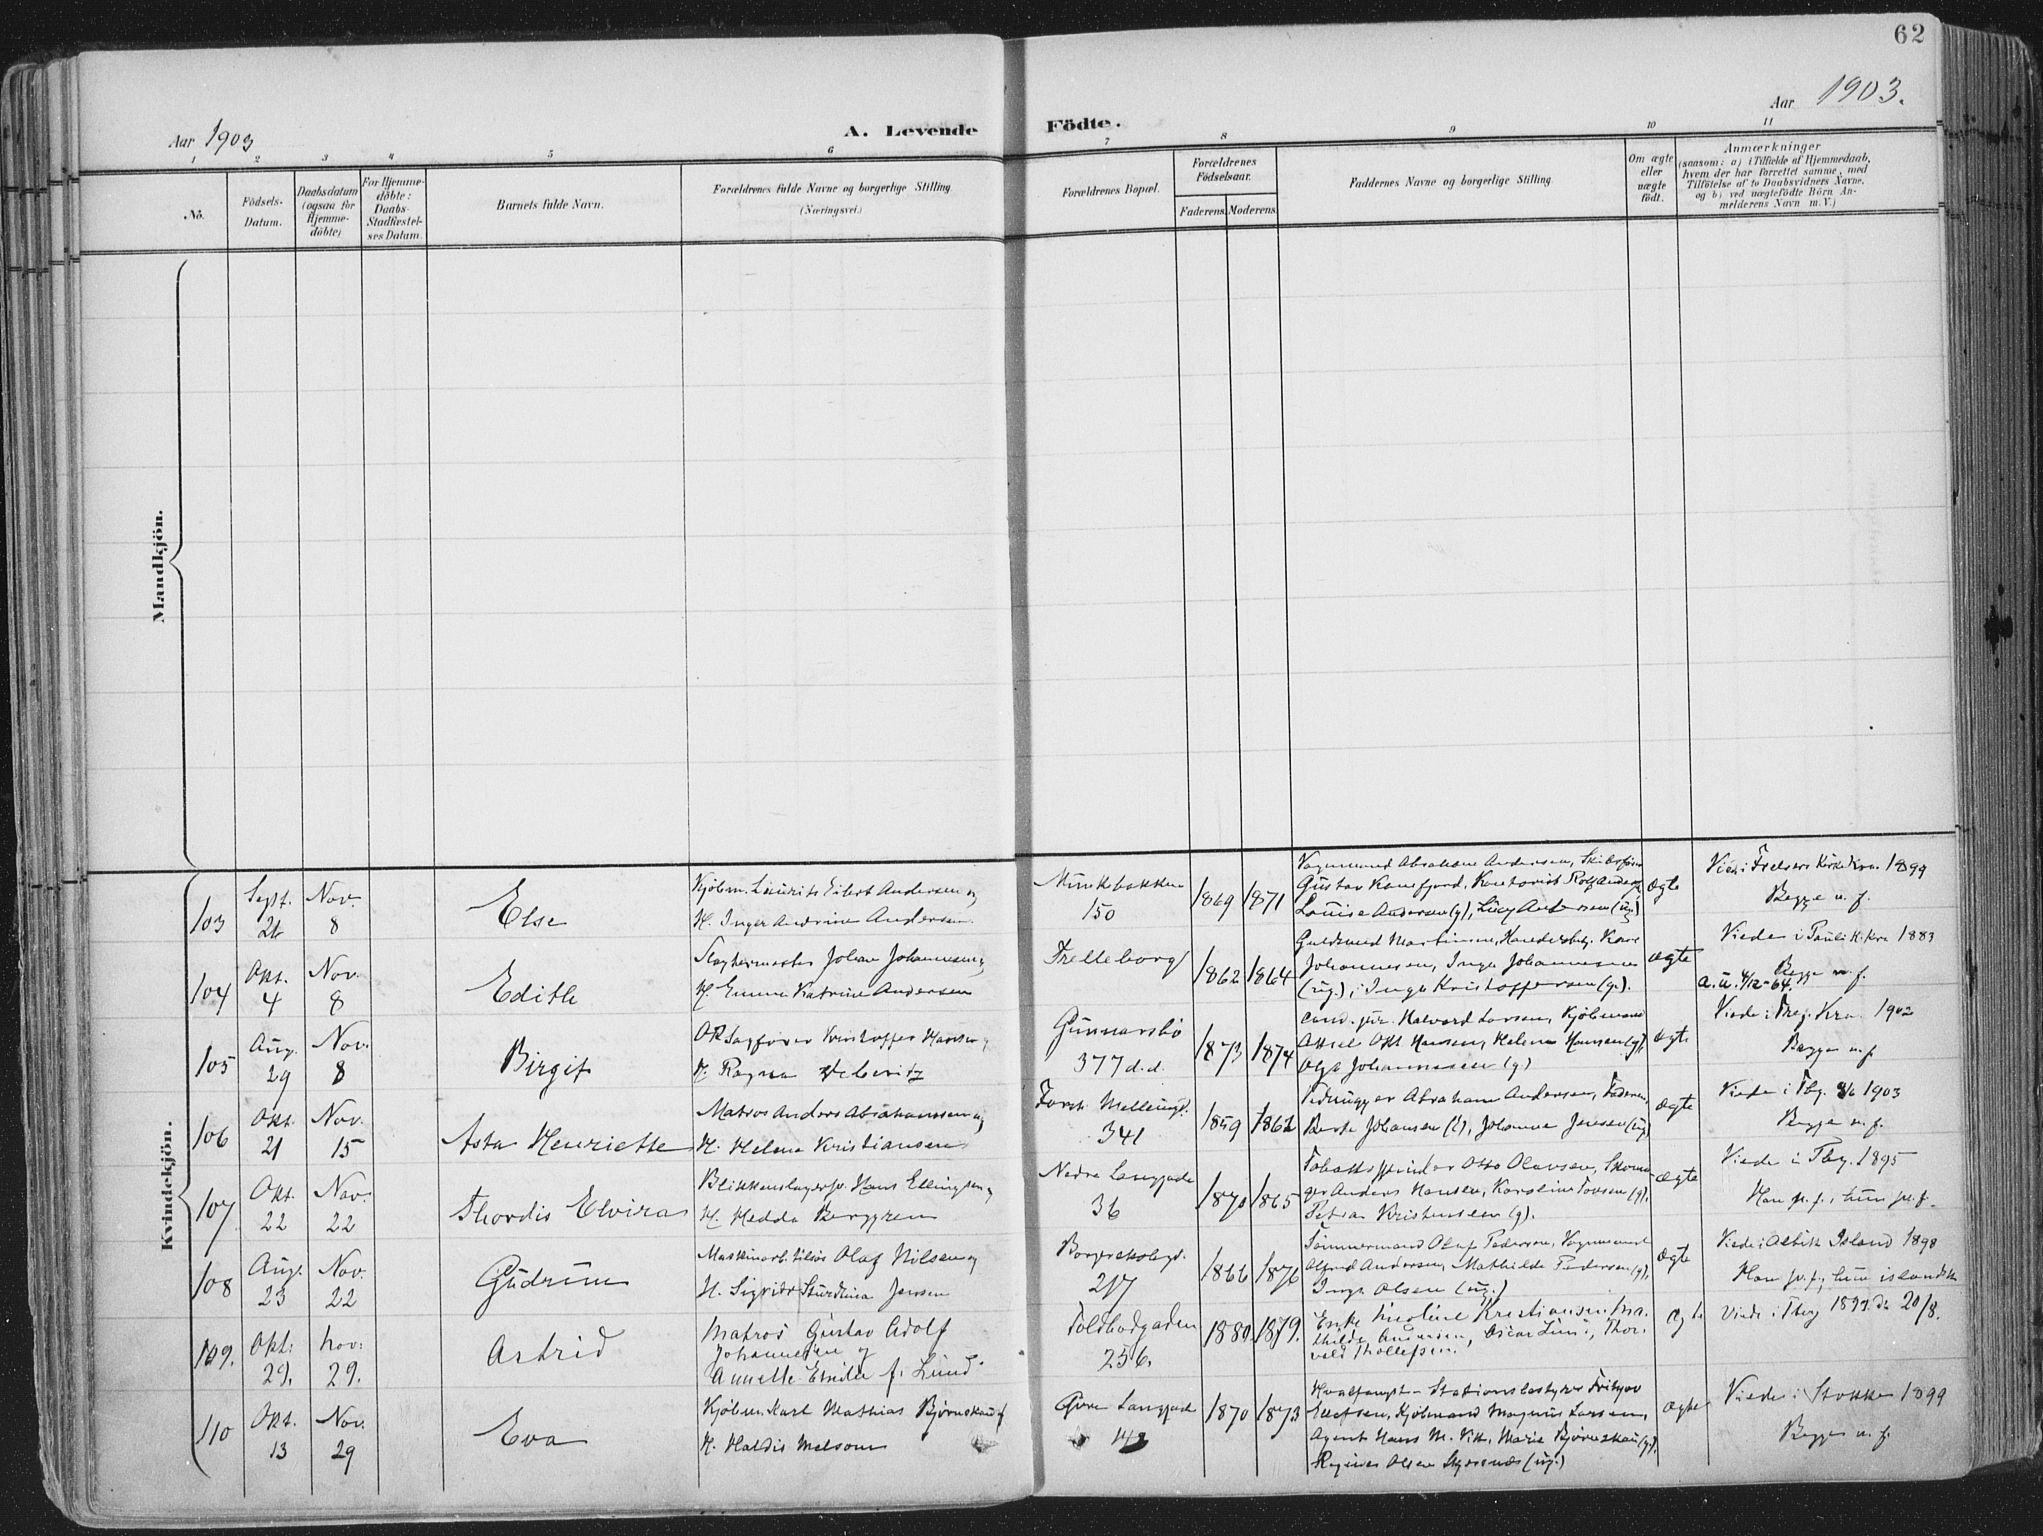 62
Aar 1903
A. Levende
Födte.
Aar 1903.
1 2 3 4 5 6 7 8 9 10 11
No.
Födsels-
Datum.
Daabsdatum
(ogsaa for
Hjemme-
döbte)
For Hjemme-
döbte:
Daabs-
Stadfæstel-
ses Datum.
Barnets fulde Navn.
Forældrenes fulde Navne og borgerlige Stilling
(Næringsvei.)
Forældrenes Bopæl.
Forældrenes
Födselsaar.
Faderens. Moderens.
Faddernes Navne og borgerlige Stilling
Om ægte
eller
uægte
födt.
Anmærkninger
(saasom: a) i Tilfælde af Hjemmedaab,
hvem der har forrettet samme, med
Tilföielse af to Daabsvidners Navne,
og b) ved uægtefödte Börn An-
melderens Navn m. V.)
Mandkjön.
Kvindekjön.
103
Sept. 24
Nov. 8
Else
Kjøbm. Laurits Eilert Andersen og
H. Inger Andrine Andersen
Munkebakken
150
1869 1871
Vognmand Abraham Andersen, Skibsfører
Gustav Kamfjord, Kontorist Rolf Andersen
Louise Andersen (g), Lucy Andersen (ug)
ægte
Viede i Frelsers Kirke Kra. 1899
Begge n. f.
104
Okt. 4
Nov. 8
Edith
Slagtermester Johan Johannesen og
H. Emma Katrine Andersen
Trelleborg
1862 1864
Guldsmed Martinsen, Handelsbetj. Kare
Johannesen, Inga Johannesen
(ug.), Inga Kristoffersen (g.).
ægte
Viede i Pauli K. Kra 1883
Begge n. f.
a. u. 4/12-64.
105
Aug. 29
Nov. 8
Birgit
OR Sagfører Kristoffer Hansen og
H. Ragna
Gunnarsbø
377 d.d.
1873 1874
cand. jur. Halvard Larsen, Kjøbmand
Aksel Okt Hansen, Helena Hansen (g),
Olga Johannessen (g)
ægte
Viede i Trej. Kra. 1902
Begge n. f
106
Okt. 21
Nov. 15
Asta Henriette
Matros Anders Abrahamsen og
H. Helena Kristiansen
341
1859 1862
Abraham Andersen, Faderen,
Berte Johansen (g), Johanne Jensen (ug)
ægte
Viede i Tbg. 1903
Begge n. f.
107
Okt. 22
Nov. 22
Thordis Elvira
Blikkenslagersv. Hans Ellingsen og
H. Hedda Berggren
Nedre Langgade
36
1870 1865
Tobakksspinder Otto Olavsen, Skoma-
ger Anders Hansen, Karoline Torsen (g),
Petra Kristensen (g).
ægte
Viede i Tbg. 1895
Han n. f., hun n. f.
108
Aug. 23
Nov. 22
Gudrun
Maskinarb. Olaf Nilsen og
H. Sigrider Sturdlina Jensen
217
1866 1876
Tømmermand Olaf Pedersen, Vognmand
Alfred Andersen, Mathilde Pedersen (g),
Inga Olsen (ug.)
ægte
Viede i Island 1898
Han n. f., hun islandsk
109.
Okt. 29.
Nov. 29.
Astrid
Matros Gustav Adolf
Johannesen og
Annette Emilie f. Lund.
Toldbodgaden
256.
1880. 1879.
Enke Nicoline Kristiansen, Ma-
thilde Andersen, Oscar Lund, Thor-
vald Thollefsen.
Viede i Tbg 1899 20/8.
110
Okt. 13
Nov. 29
Eva
Kjøbm. Karl Mathias Bjørnskau og
H. Haldis Melsom
Øvre Langgade
1870 1873
Hvalfangst-Stationsbestyrer Fritjov
Ellefsen, Kjøbmand Magnus Larsen,
Agent Hans M. Vik, Marie Bjørnskau (g.),
Olsen (ug.)
ægte
Viede i Stokke 1899
Begge n. f.